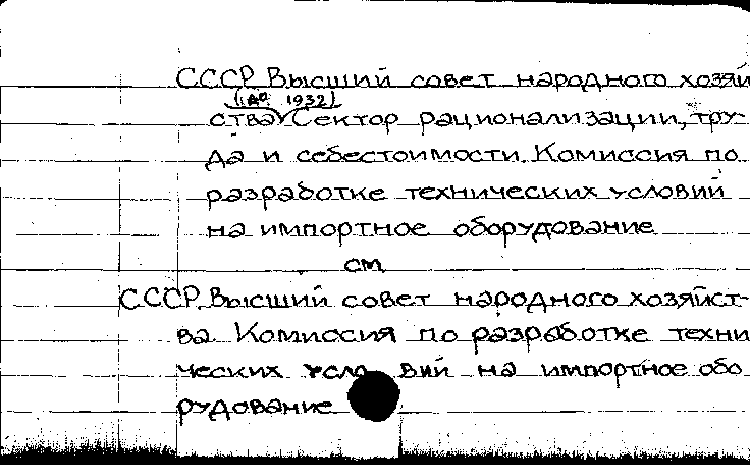 СССР. Высший совет народного хозяй
(до 1932)
ства Сектор рационализации, тру-
да и себестоимости. Комиссия по
разработке технических условий
на импортное оборудование
см
СССР. Высший совет народного хозяйст-
ва Комиссия по разработке техни
ческих усло вий на импортное обо
рудование